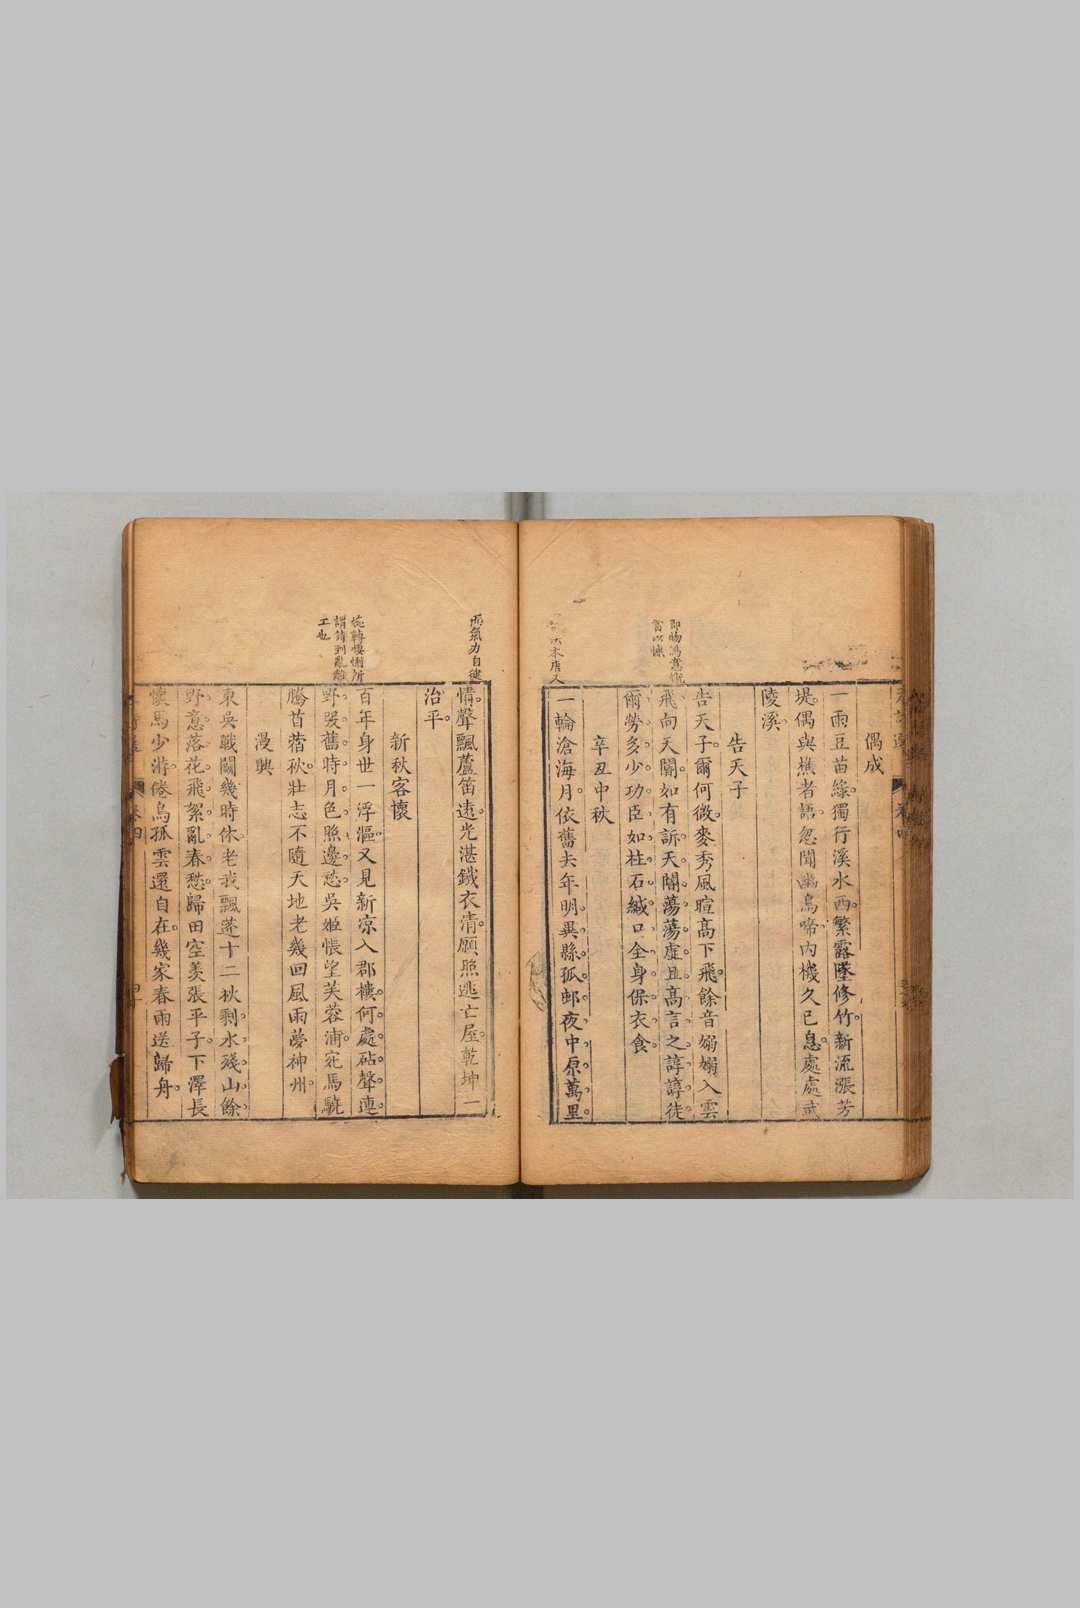 偶成
一雨豆苗綠獨行溪水西繁露墜修竹新流漲芳
堤偶與樵者語忽聞幽鳥啼內機久已息處處武
陵溪
即物寓意
告天子
告天子爾何微麥秀風暄高下飛餘音嫋嫋入雲
飛向天關如有訴天關蕩蕩虛且高言之諄諄徒
爾勞多少功臣如柱石緘口全身保衣食
辛丑中秋
一輪滄海月依舊去年明異縣孤邨夜中原萬里
而氣力自健
情聲飄蘆笛遠光湛鐵衣清願照逃亡屋乾坤一
治平
新秋客懷
百年身世一浮漚又見新凉入郡樓何處砧聲連
野叟舊時月色照邊愁吳姬悵望芙蓉浦宛馬驍
騰苜蓿秋壯志不隨天地老幾回風雨夢神州
謂詩到亂離
工也
漫興
東吳戰鬬幾時休老我飄蓬十二秋剩水殘山餘
野意落花飛絮亂春愁歸田空羨張平子下澤長
懷馬少游倦鳥孤雲還自在幾家春雨送歸舟
卷四